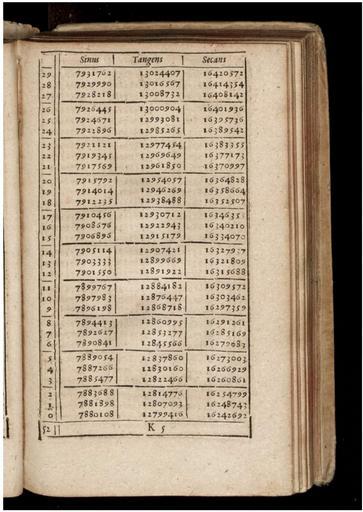 Sinus Tangens Secans
29 7931762 13024407 16420572
28 7929990 13016567 16414354
27 7928218 13008732 16408142
26 7926445 13000904 16401936
25 7924671 12993081 16395736
24 7922896 12985265 16389542
23 7921121 12977454 16383355
22 7919345 12969649 16377173
21 7917569 12961850 16370997
20 7915792 12954057 16364828
19 7914014 12946269 16358664
18 7912235 12938488 16352507
17 7910456 12930712
16 7908676 12922943 16340210
15 7906896 12915179 16334070
14 7905114 12907421 16327937
13 7903333 12899669 16321809
12 7901550 12891922 16315688
11 7899767 12884182 16309572
10 7897983 12876447 16303462
9 7896198 12868718 16297359
8 7894413 12860995 16291261
7 7892627 12853277 16285169
6 7890841 12845566 16279083
5 7889054 12837860 16273003
4 7887266 12830160 16266929
3 7885477 12822466 16260861
2 7883688 12814776 16254799
1 7881898 12807093 16248743
0 7880108 12799416 16242692
52 K 5